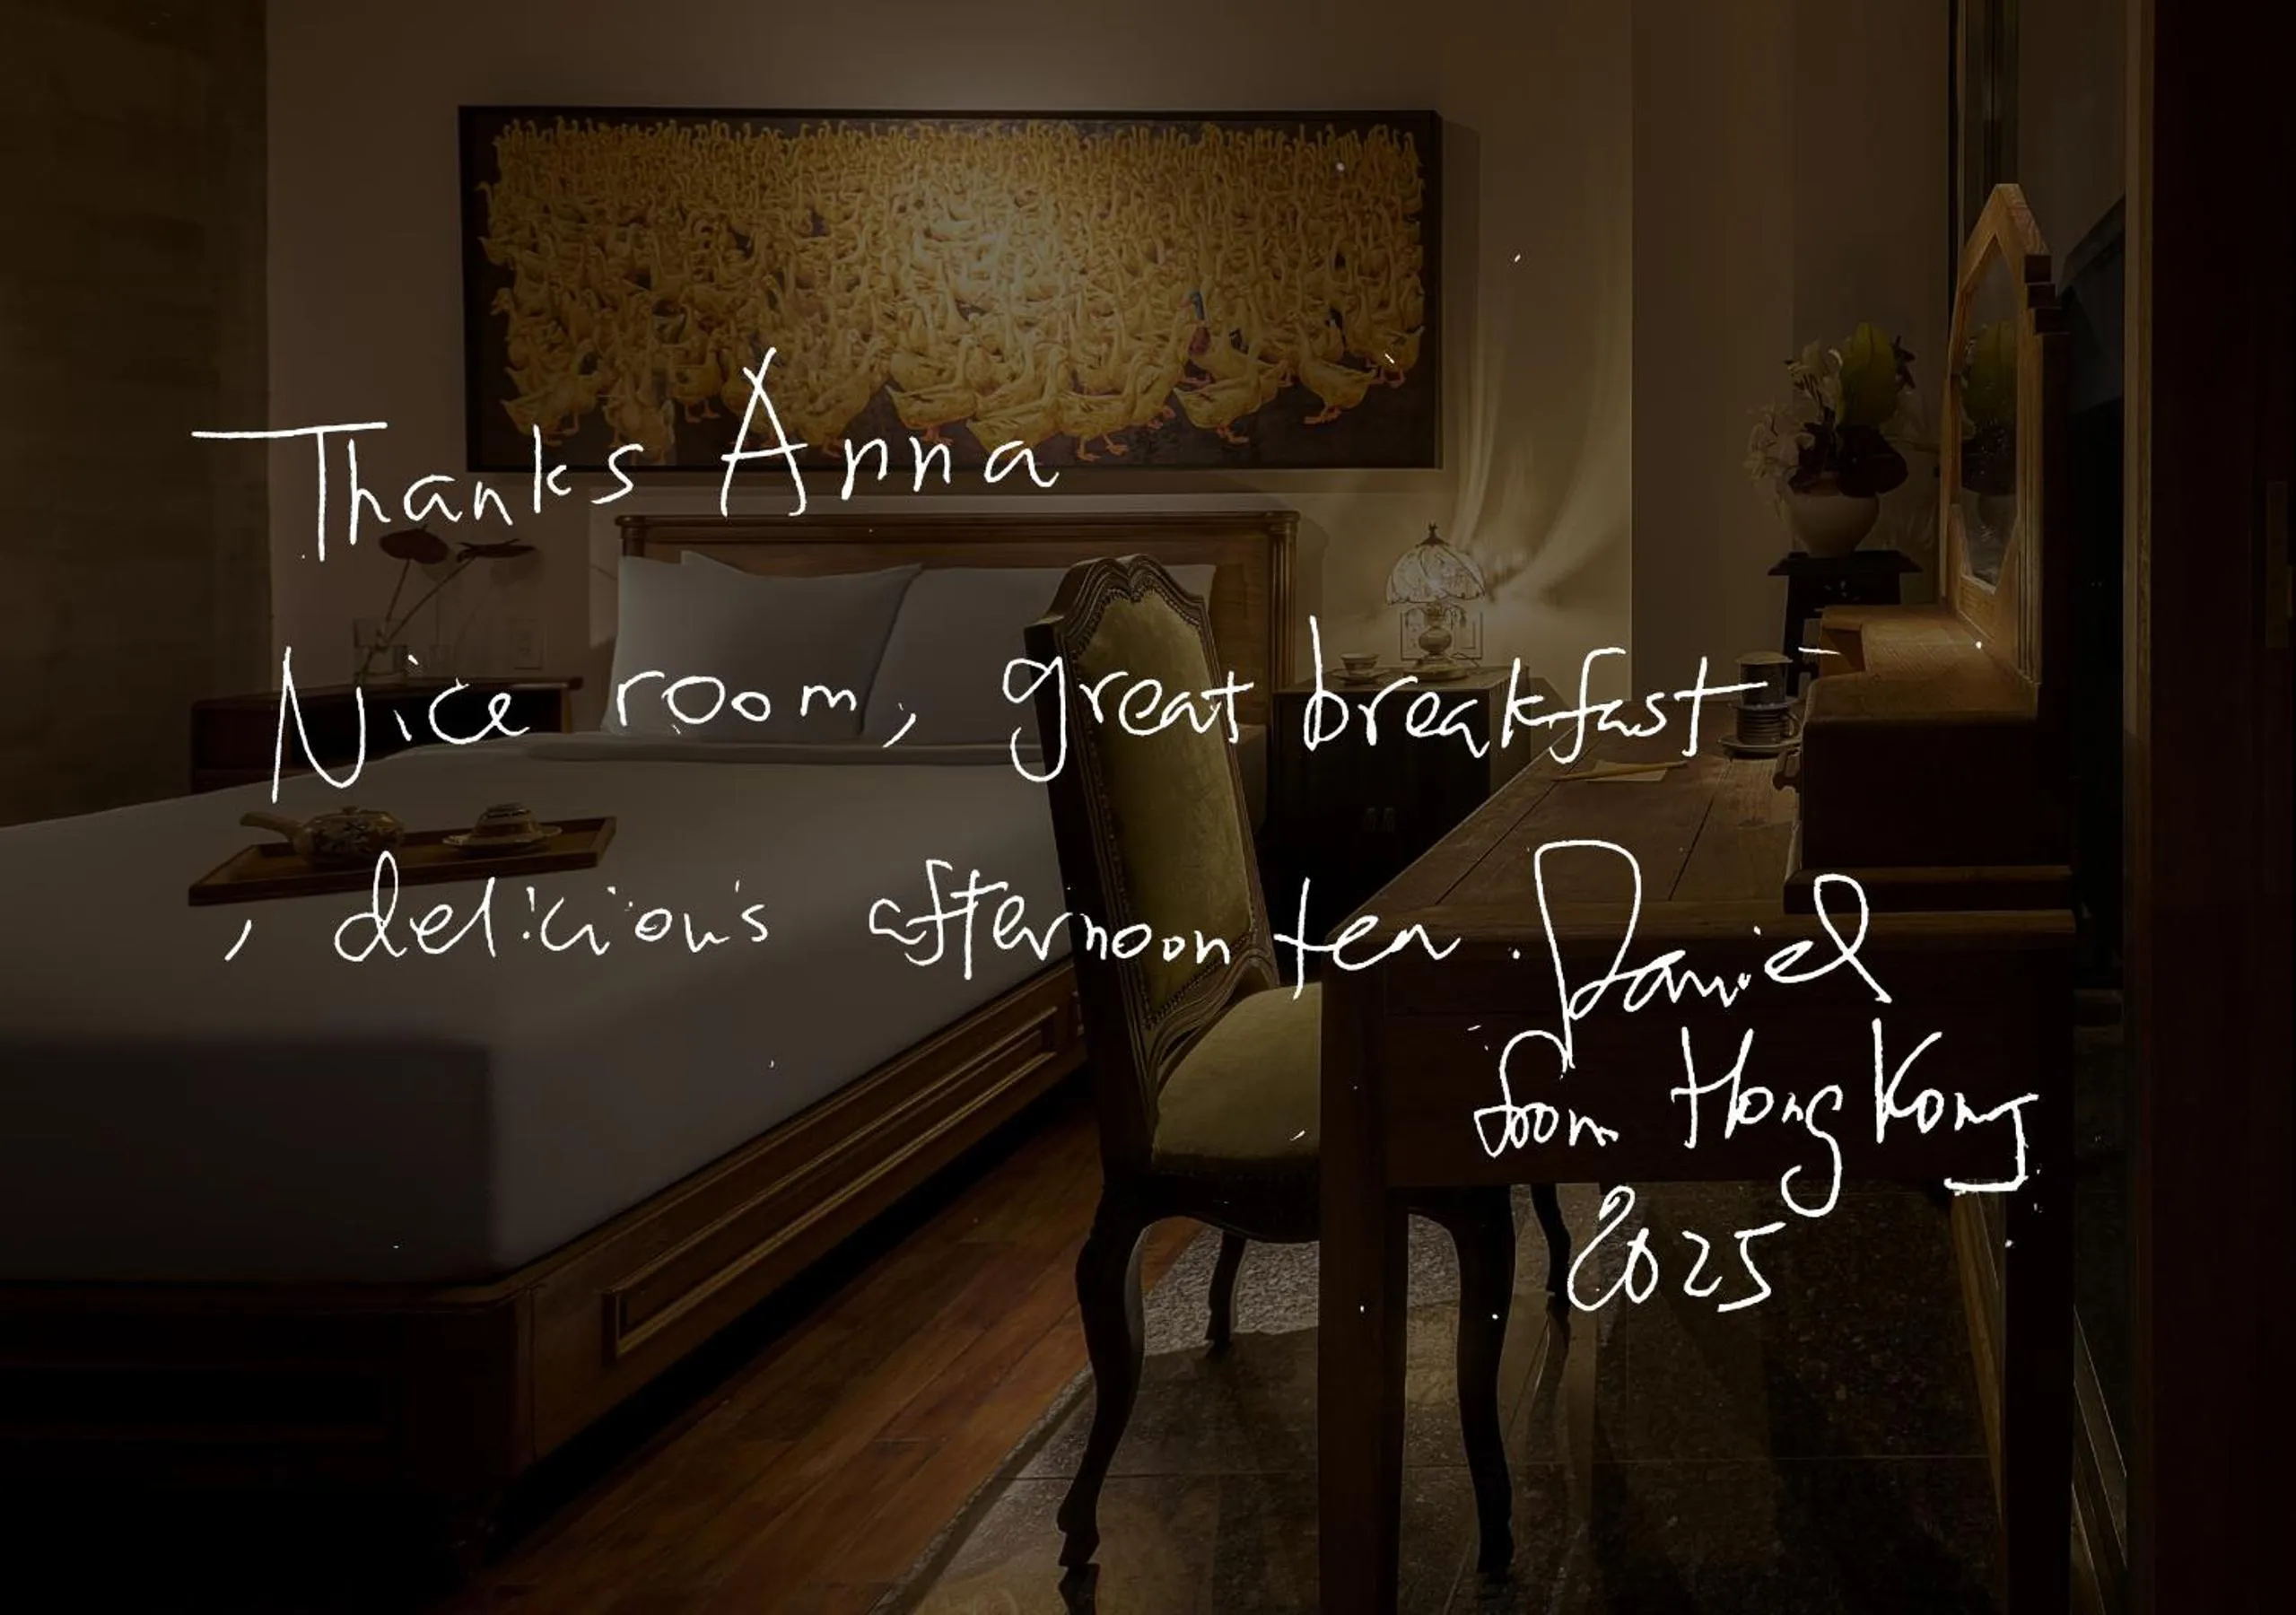 Thanks Anna
Nice room, great breakfast
, delicious afternoon tea.
Daniel
from Hong Kong
2025